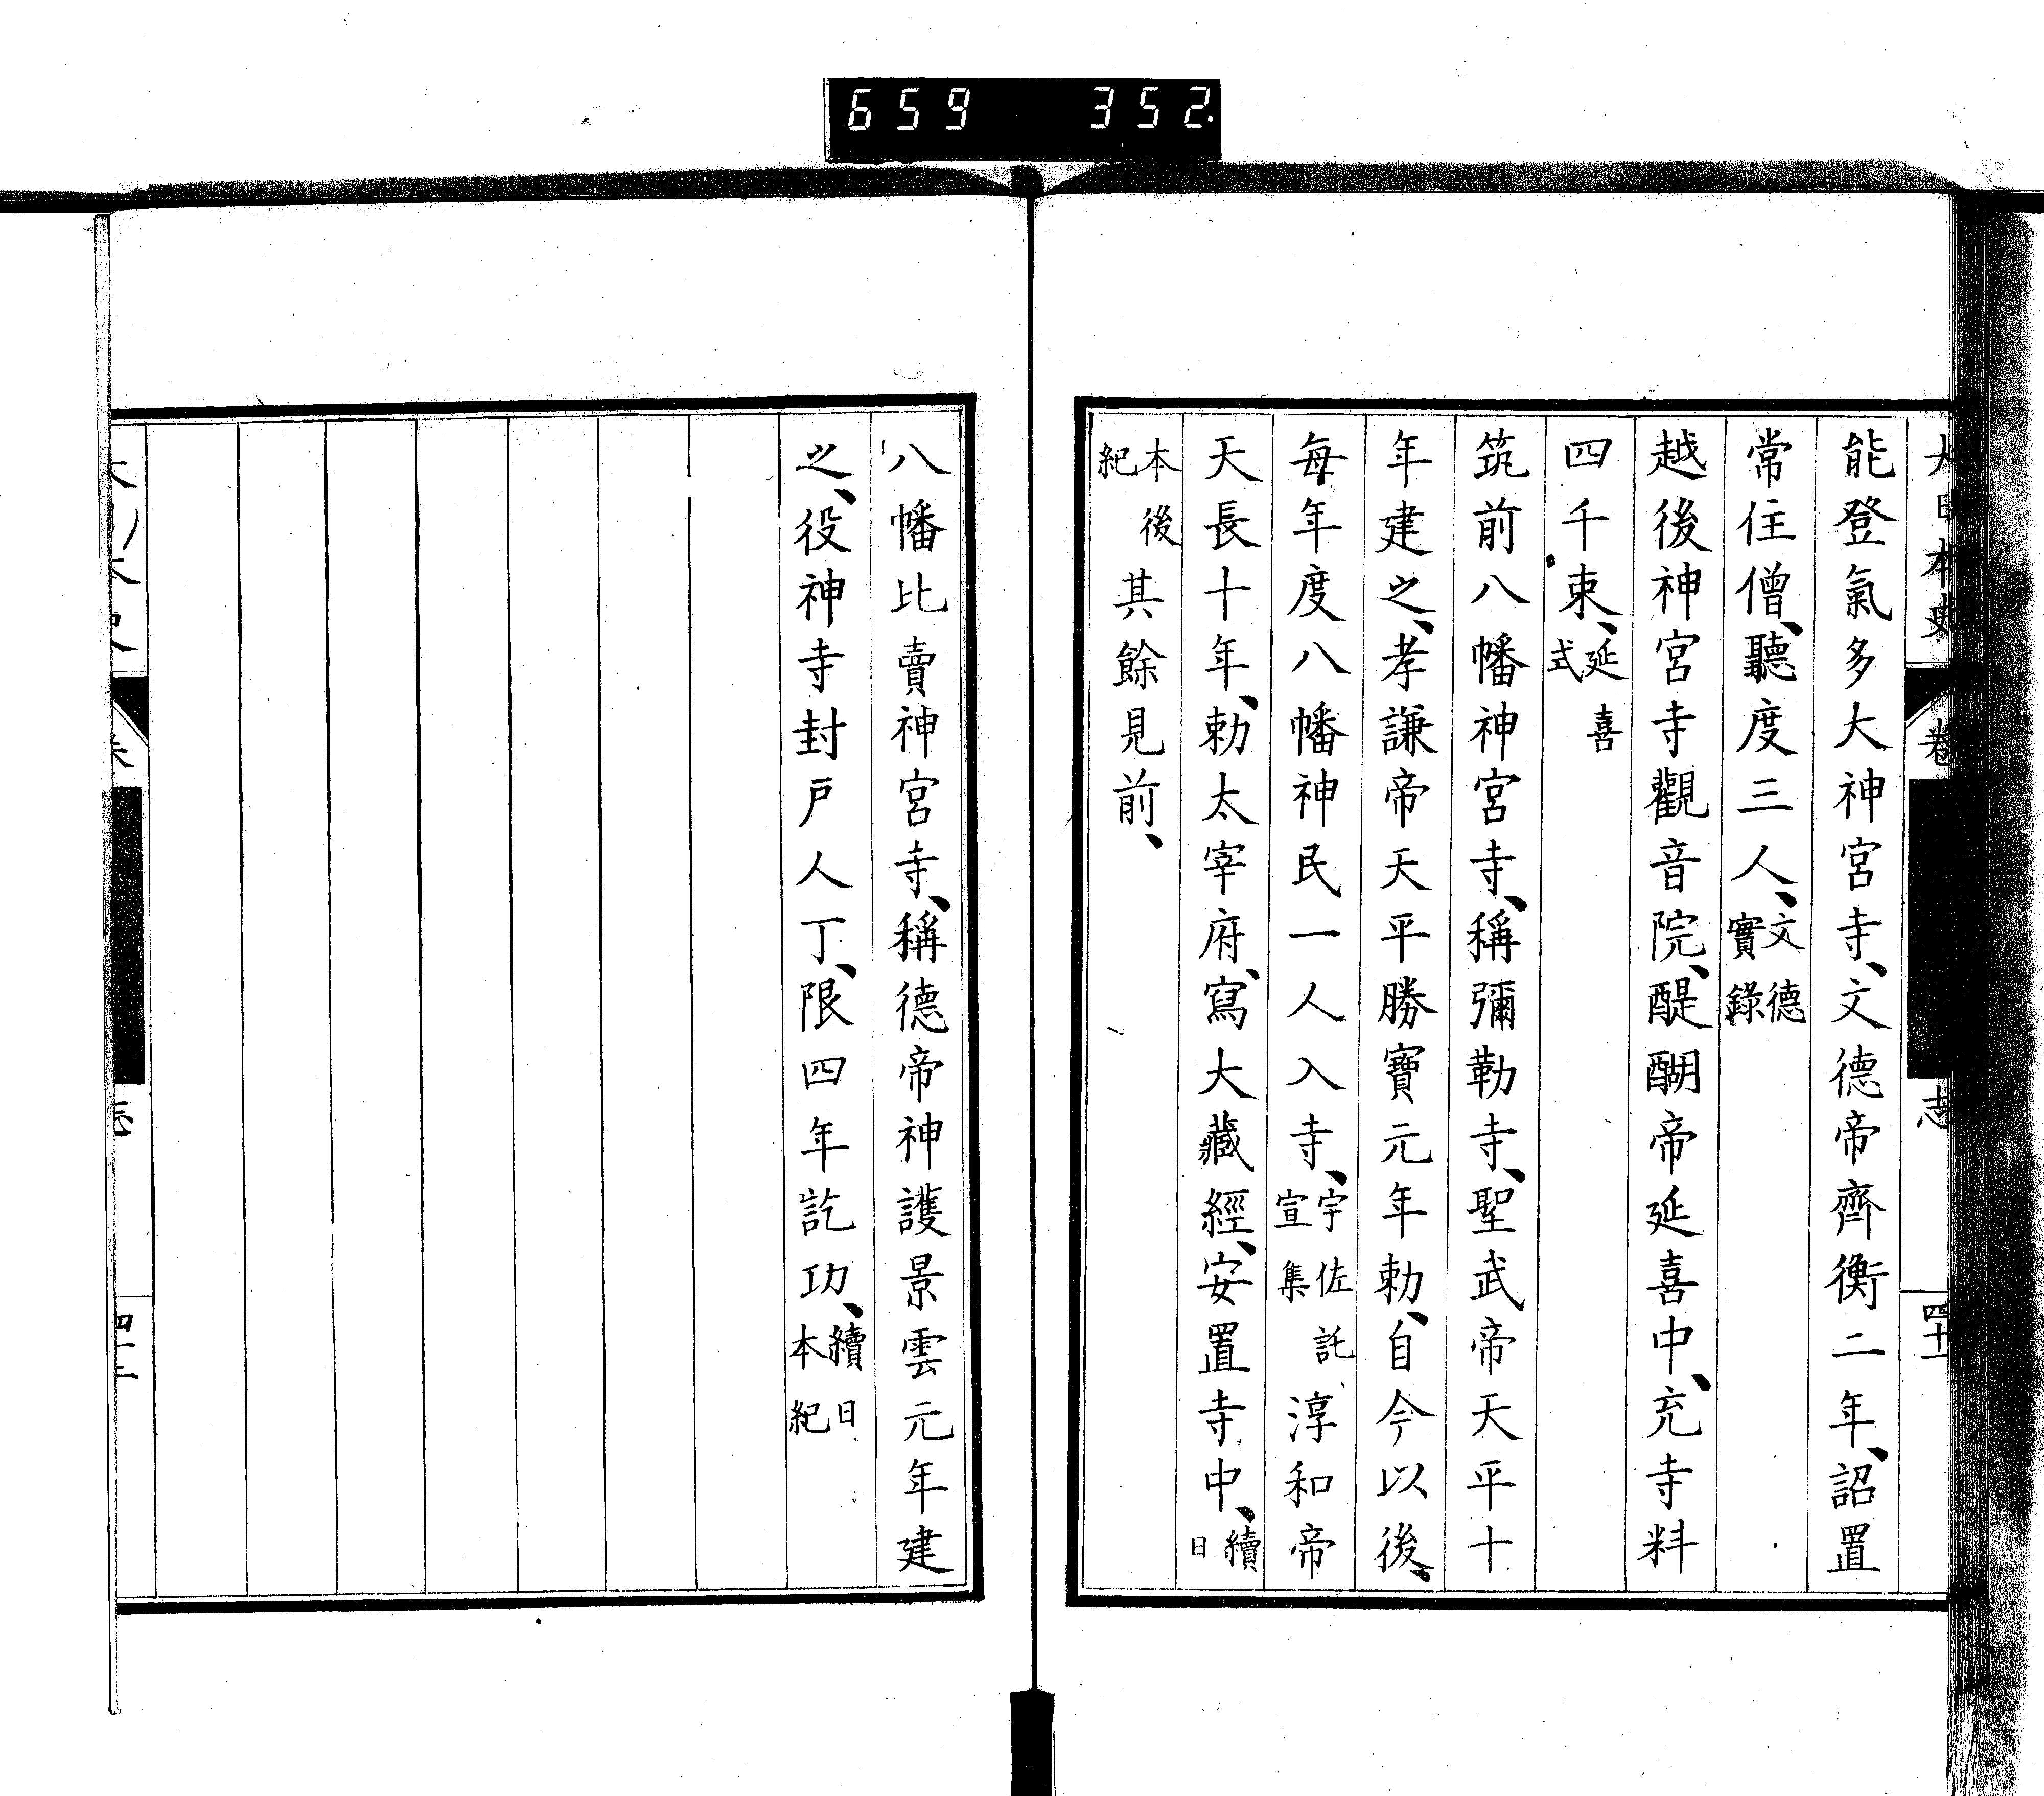 659 352.
大日本史 卷 志 四十一
能登氣多大神宮寺、文德帝齊衡二年、詔置
常住僧、聽度三人、文德實錄
越後神宮寺觀音院、醍醐帝延喜中、充寺料
四千束、延喜式
筑前八幡神宮寺、稱彌勒寺、聖武帝天平十
年建之、孝謙帝天平勝寶元年勅、自今以後、
每年度八幡神民一人入寺、宇佐託宣集淳和帝
天長十年、勅太宰府、寫大藏經、安置寺中、續日
本後紀其餘見前、
八幡比賣神宮寺、稱德帝神護景雲元年建
之、役神寺封戶人丁、限四年訖功、續日本紀